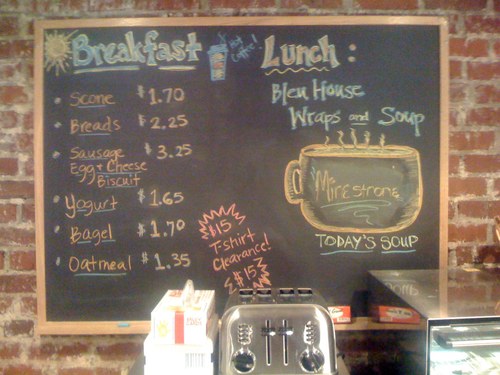 Breakfast
Scone $1.70
Breads $2.25
Sausage
Egg + Cheese
Biscuit $3.25
Yogurt $1.65
Bagel $1.70
Oatmeal $1.35
$15
T-shirt
Clearance!
$15
Lunch:
Bleu House
Wraps and Soup
Minestrone
TODAY'S SOUP